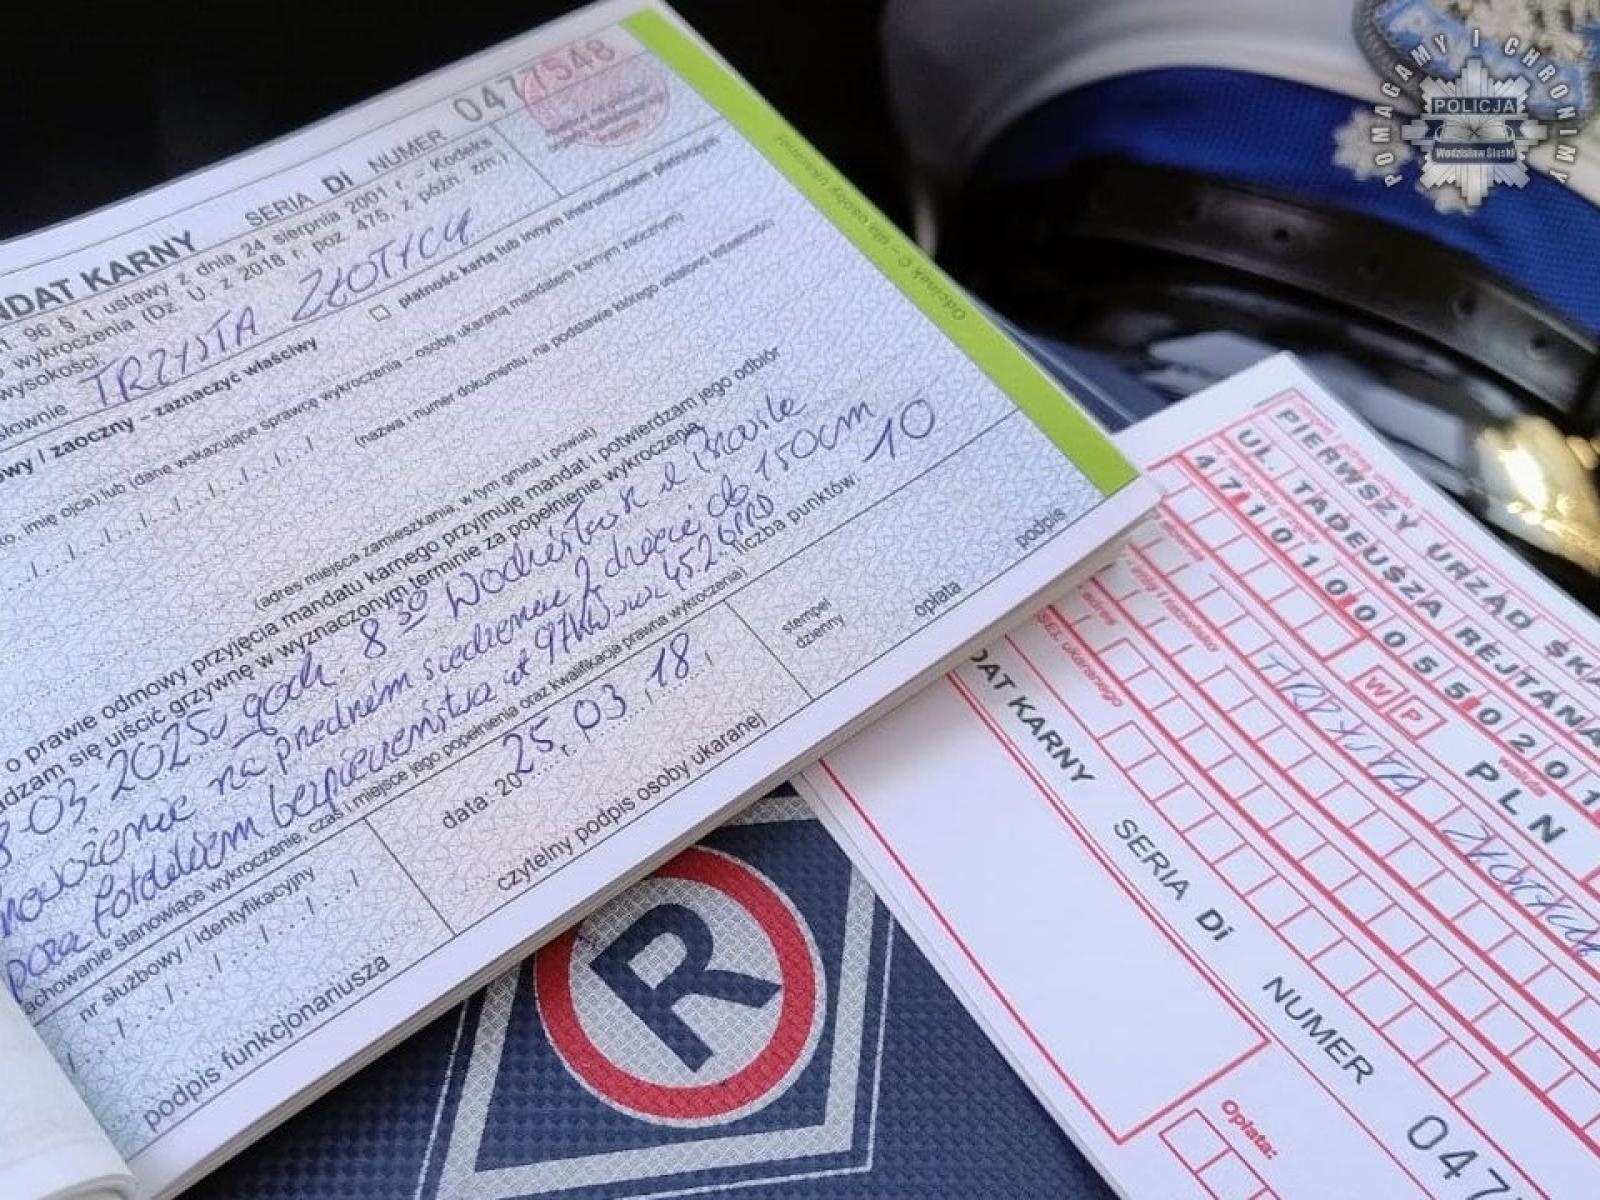 POMAGAMY I CHRONIMY
POLICJA
Wodzisław Śląski
NDAT KARNY SERIA Di NUMER 0477548
96 § 1 ustawy z dnia 24 sierpnia 2001 r. – Kodeks
wykroczenia (Dz. U. z 2018 r. poz. 475, z późn. zm.)
wysokości:
słownie TRZYSTA ZŁOTYCH
owy / zaoczny – zaznaczyć właściwy □ płatność kartą lub innym instrumentem płatniczym
ko, imię ojca) lub (dane wskazujące sprawcę wykroczenia – osobę ukaraną mandatem karnym zaocznym)
(nazwa i numer dokumentu, na podstawie którego ustalono tożsamość)
(adres miejsca zamieszkania, w tym gmina i powiat)
o prawie odmowy przyjęcia mandatu karnego przyjmuję mandat i potwierdzam jego odbiór
dzam się uiścić grzywnę w wyznaczonym terminie za popełnienie wykroczenia
-03-2025 godz. 8 30 Wodzisław ul
na przednim siedzeniu dziecię do 150cm
poza fotelikiem bezpieczeństwa art 97KW 45.2
liczba punktów: 10
achowanie stanowiące wykroczenie, czas i miejsce jego popełnienia oraz kwalifikacja prawna wykroczenia)
nr służbowy / identyfikacyjny
data: 20 25 r. 03 18
stempel
dzienny
opłata
podpis
podpis funkcjonariusza
czytelny podpis osoby ukaranej
Odcinek C – dla osoby ukaranej
R
PIERWSZY URZĄD SKA
UL. TADEUSZA REJTANA
47101000550201
W P PLN
waluta
TRZYSTA ZŁOTYCH
DAT KARNY SERIA Di NUMER 047
Opłata: